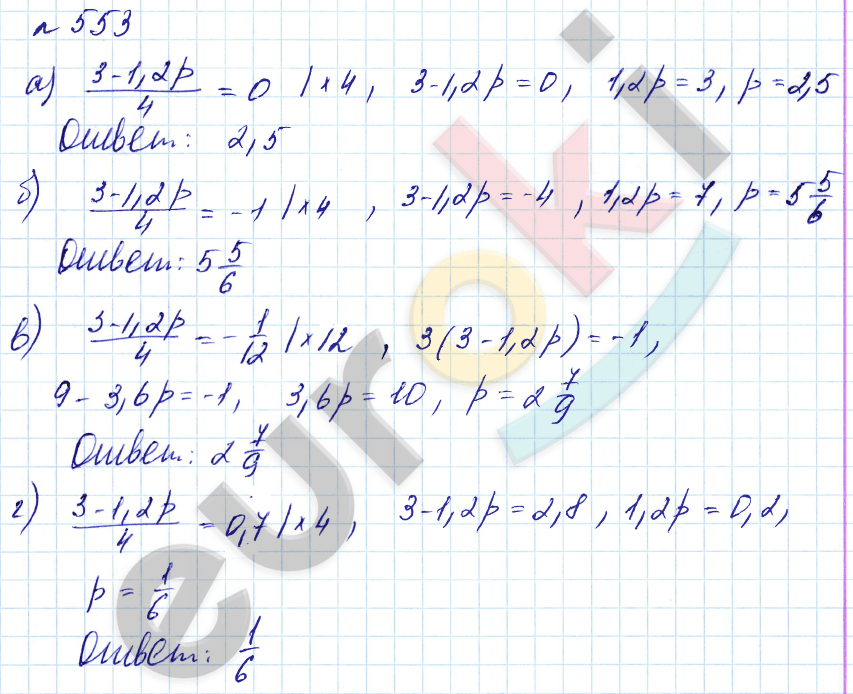 № 553
а) (3-1,2p)/4 = 0 |×4, 3-1,2p=0, 1,2p=3, p=2,5
Ответ: 2,5
б) (3-1,2p)/4 = -1 |×4, 3-1,2p=-4, 1,2p=7, p=5 5/6
Ответ: 5 5/6
в) (3-1,2p)/4 = -1/12 |×12, 3(3-1,2p)=-1,
9-3,6p=-1, 3,6p=10, p=2 7/9
Ответ: 2 7/9
г) (3-1,2p)/4 = 0,7 |×4, 3-1,2p=2,8, 1,2p=0,2,
p = 1/6
Ответ: 1/6
euroki